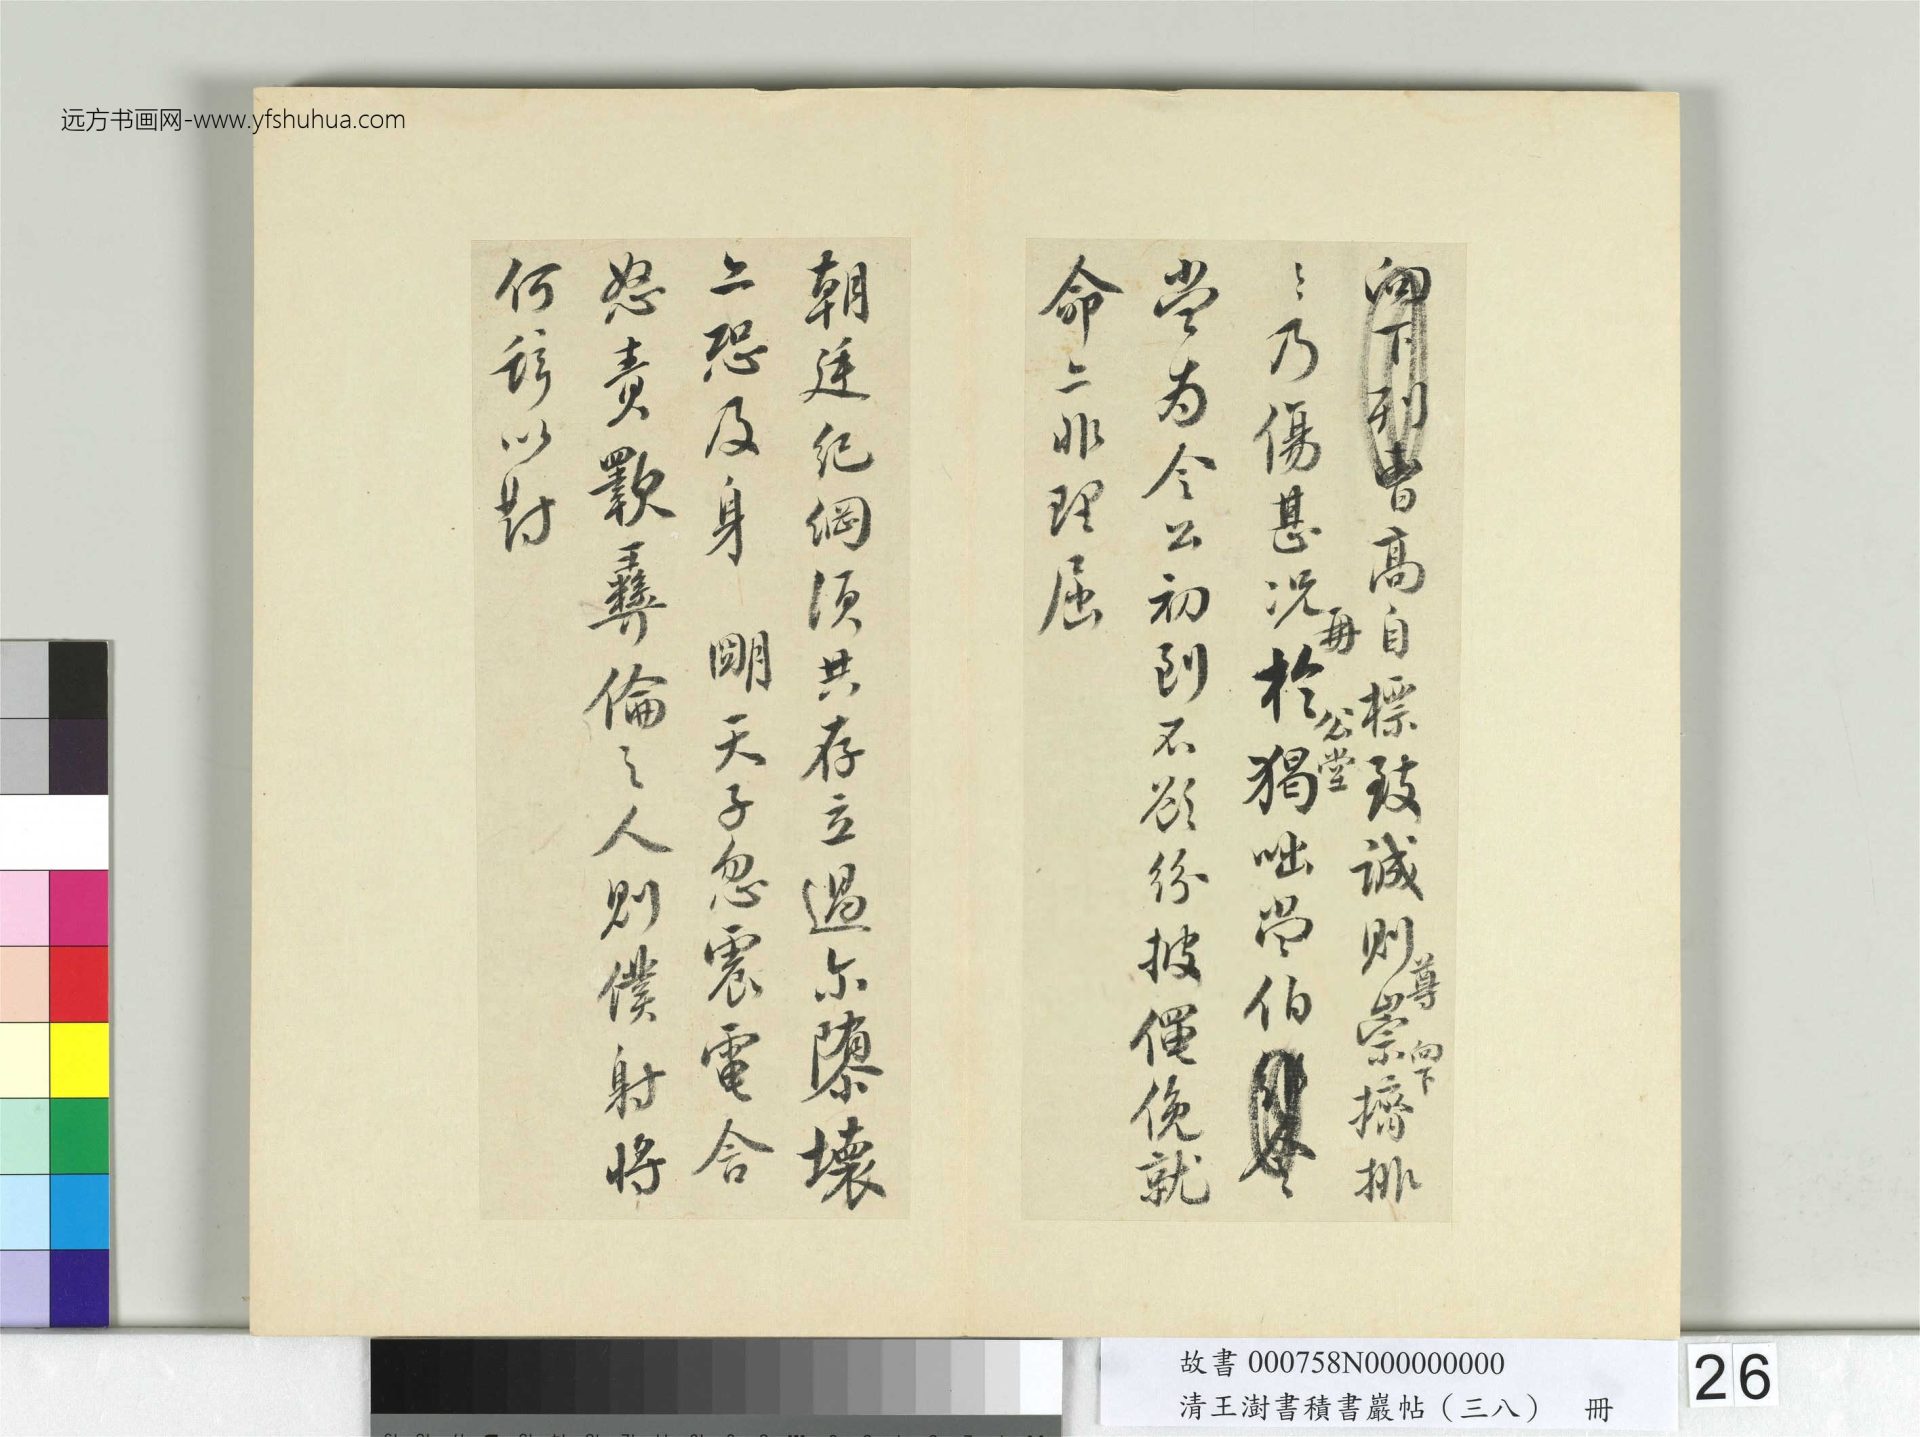 远方书画网-www.yfshuhua.com
向下刑書高自標致誠則尊崇向下擠排
〻乃傷甚況再於公堂猲咄常伯
當為令公初到不欲紛披僶俛就
命亦非理屈
朝廷紀綱須共存立過尔隳壞
亦恐及身 明天子忽震電含
怒責斁彝倫之人則僕射將
何辭以對
故書 000758N000000000
清王澍書積書巖帖（三八） 冊
26